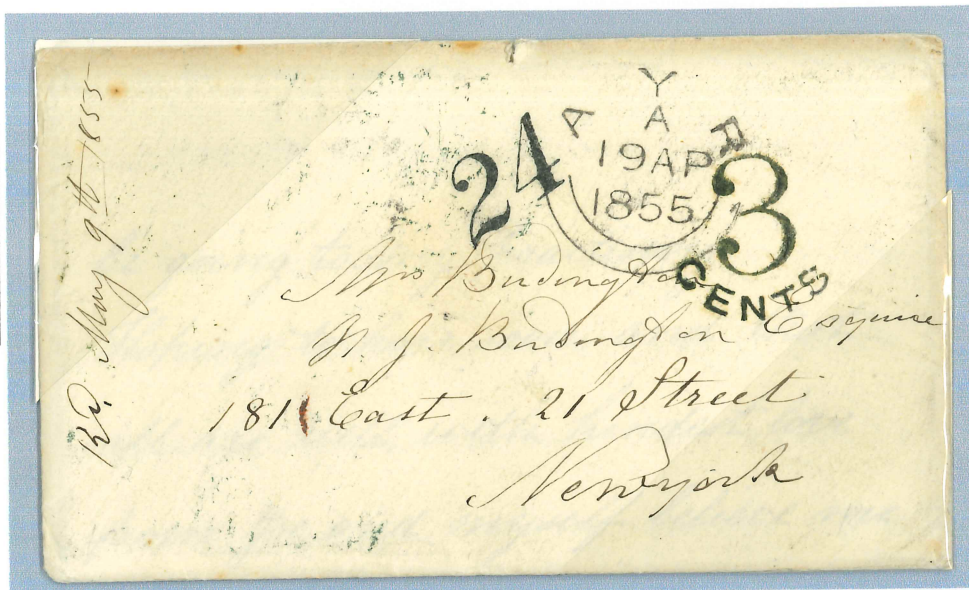 Rd. May 9th 1855
24
AYR
A
19AP
1855
3
CENTS
Mrs Budington
H. J. Budington Esquire
181 East. 21 Street
Newyork